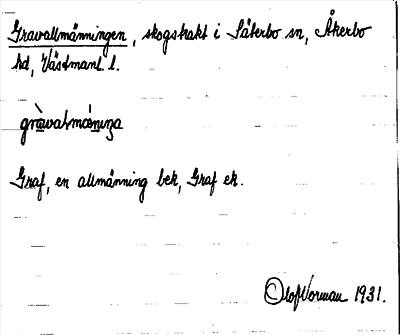 Gravallmänningen, skogstrakt i Säterbo sn, Åkerbo
hd, Västmanl. l.
gràvalmäniŋa
Graf, en allmänning bek, Graf ek.
Olof Norman 1931.